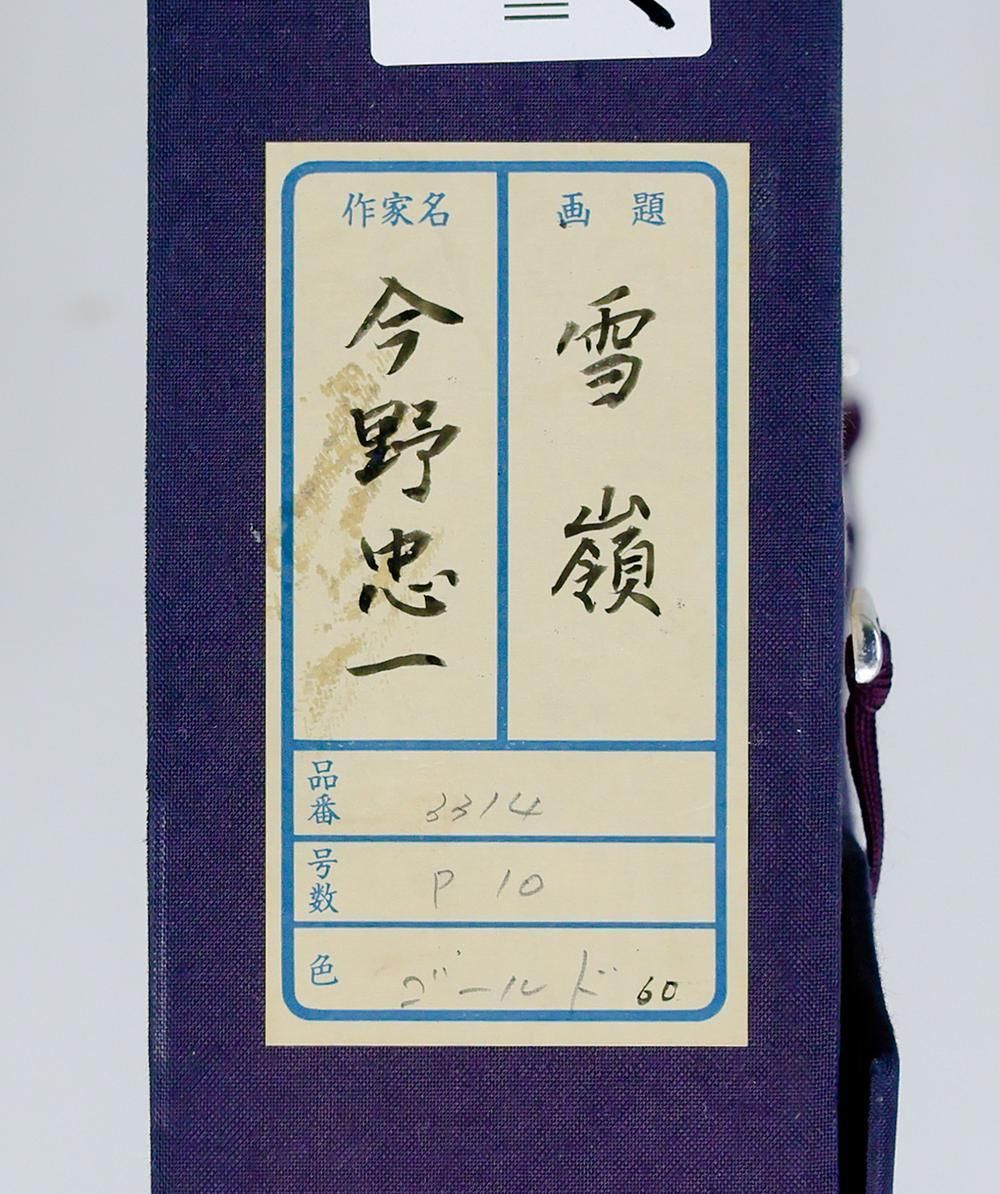 画題
雪嶺
作家名
今野忠一
品番
3314
号数
P 10
色
ゴールド 60